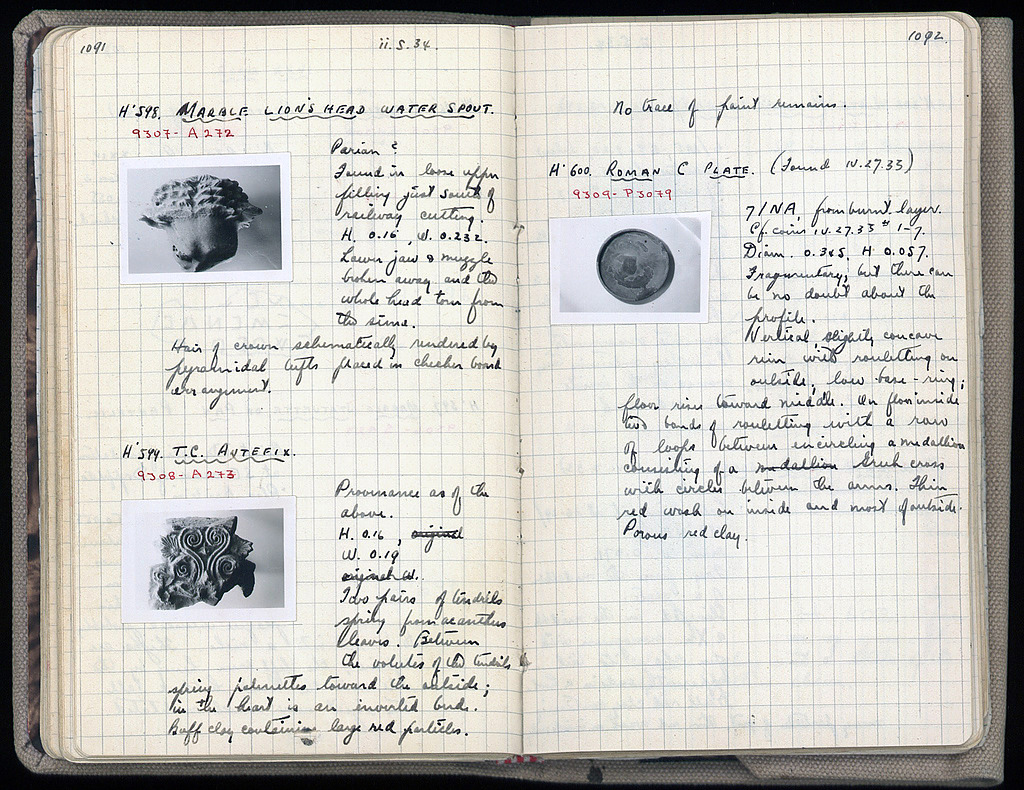 1091
ii.5.34.
H'598. MARBLE LION'S HEAD WATER SPOUT.
9307-A272
Parian ?
Found in loose upper
filling just south of
railway cutting.
H. 0.16, W. 0.232.
Lower jaw & muzzle
broken away and the
whole head torn from
the sima.
Hair of crown schematically rendered by
pyramidal tufts placed in checker board
arrangement.
H'599. T.C. ANTEFIX.
9308-A273
Provenance as of the
above.
H. 0.16, original
W. 0.19
original W.
Two pairs of tendrils
spring from acanthus
leaves. Between
the volutes of the tendrils
spring palmettes toward the outside;
in the heart is an inverted bud.
Buff clay containing large red particles.
1092
No trace of paint remains.
H'600. ROMAN C PLATE. (Found IV.27.33)
9309-P3079
7/NA, from burnt layer.
Cf. coins IV.27.33 # 1-7.
Diam. 0.345. H. 0.057.
Fragmentary; but there can
be no doubt about the
profile.
Vertical, slightly concave
rim with rouletting on
outside; low base-ring;
floor rises toward middle. On floor inside
two bands of rouletting with a row
of loops between encircling a medallion
consisting of a medallion Greek cross
with circles between the arms. Thin
red wash on inside and most of outside.
Porous red clay.